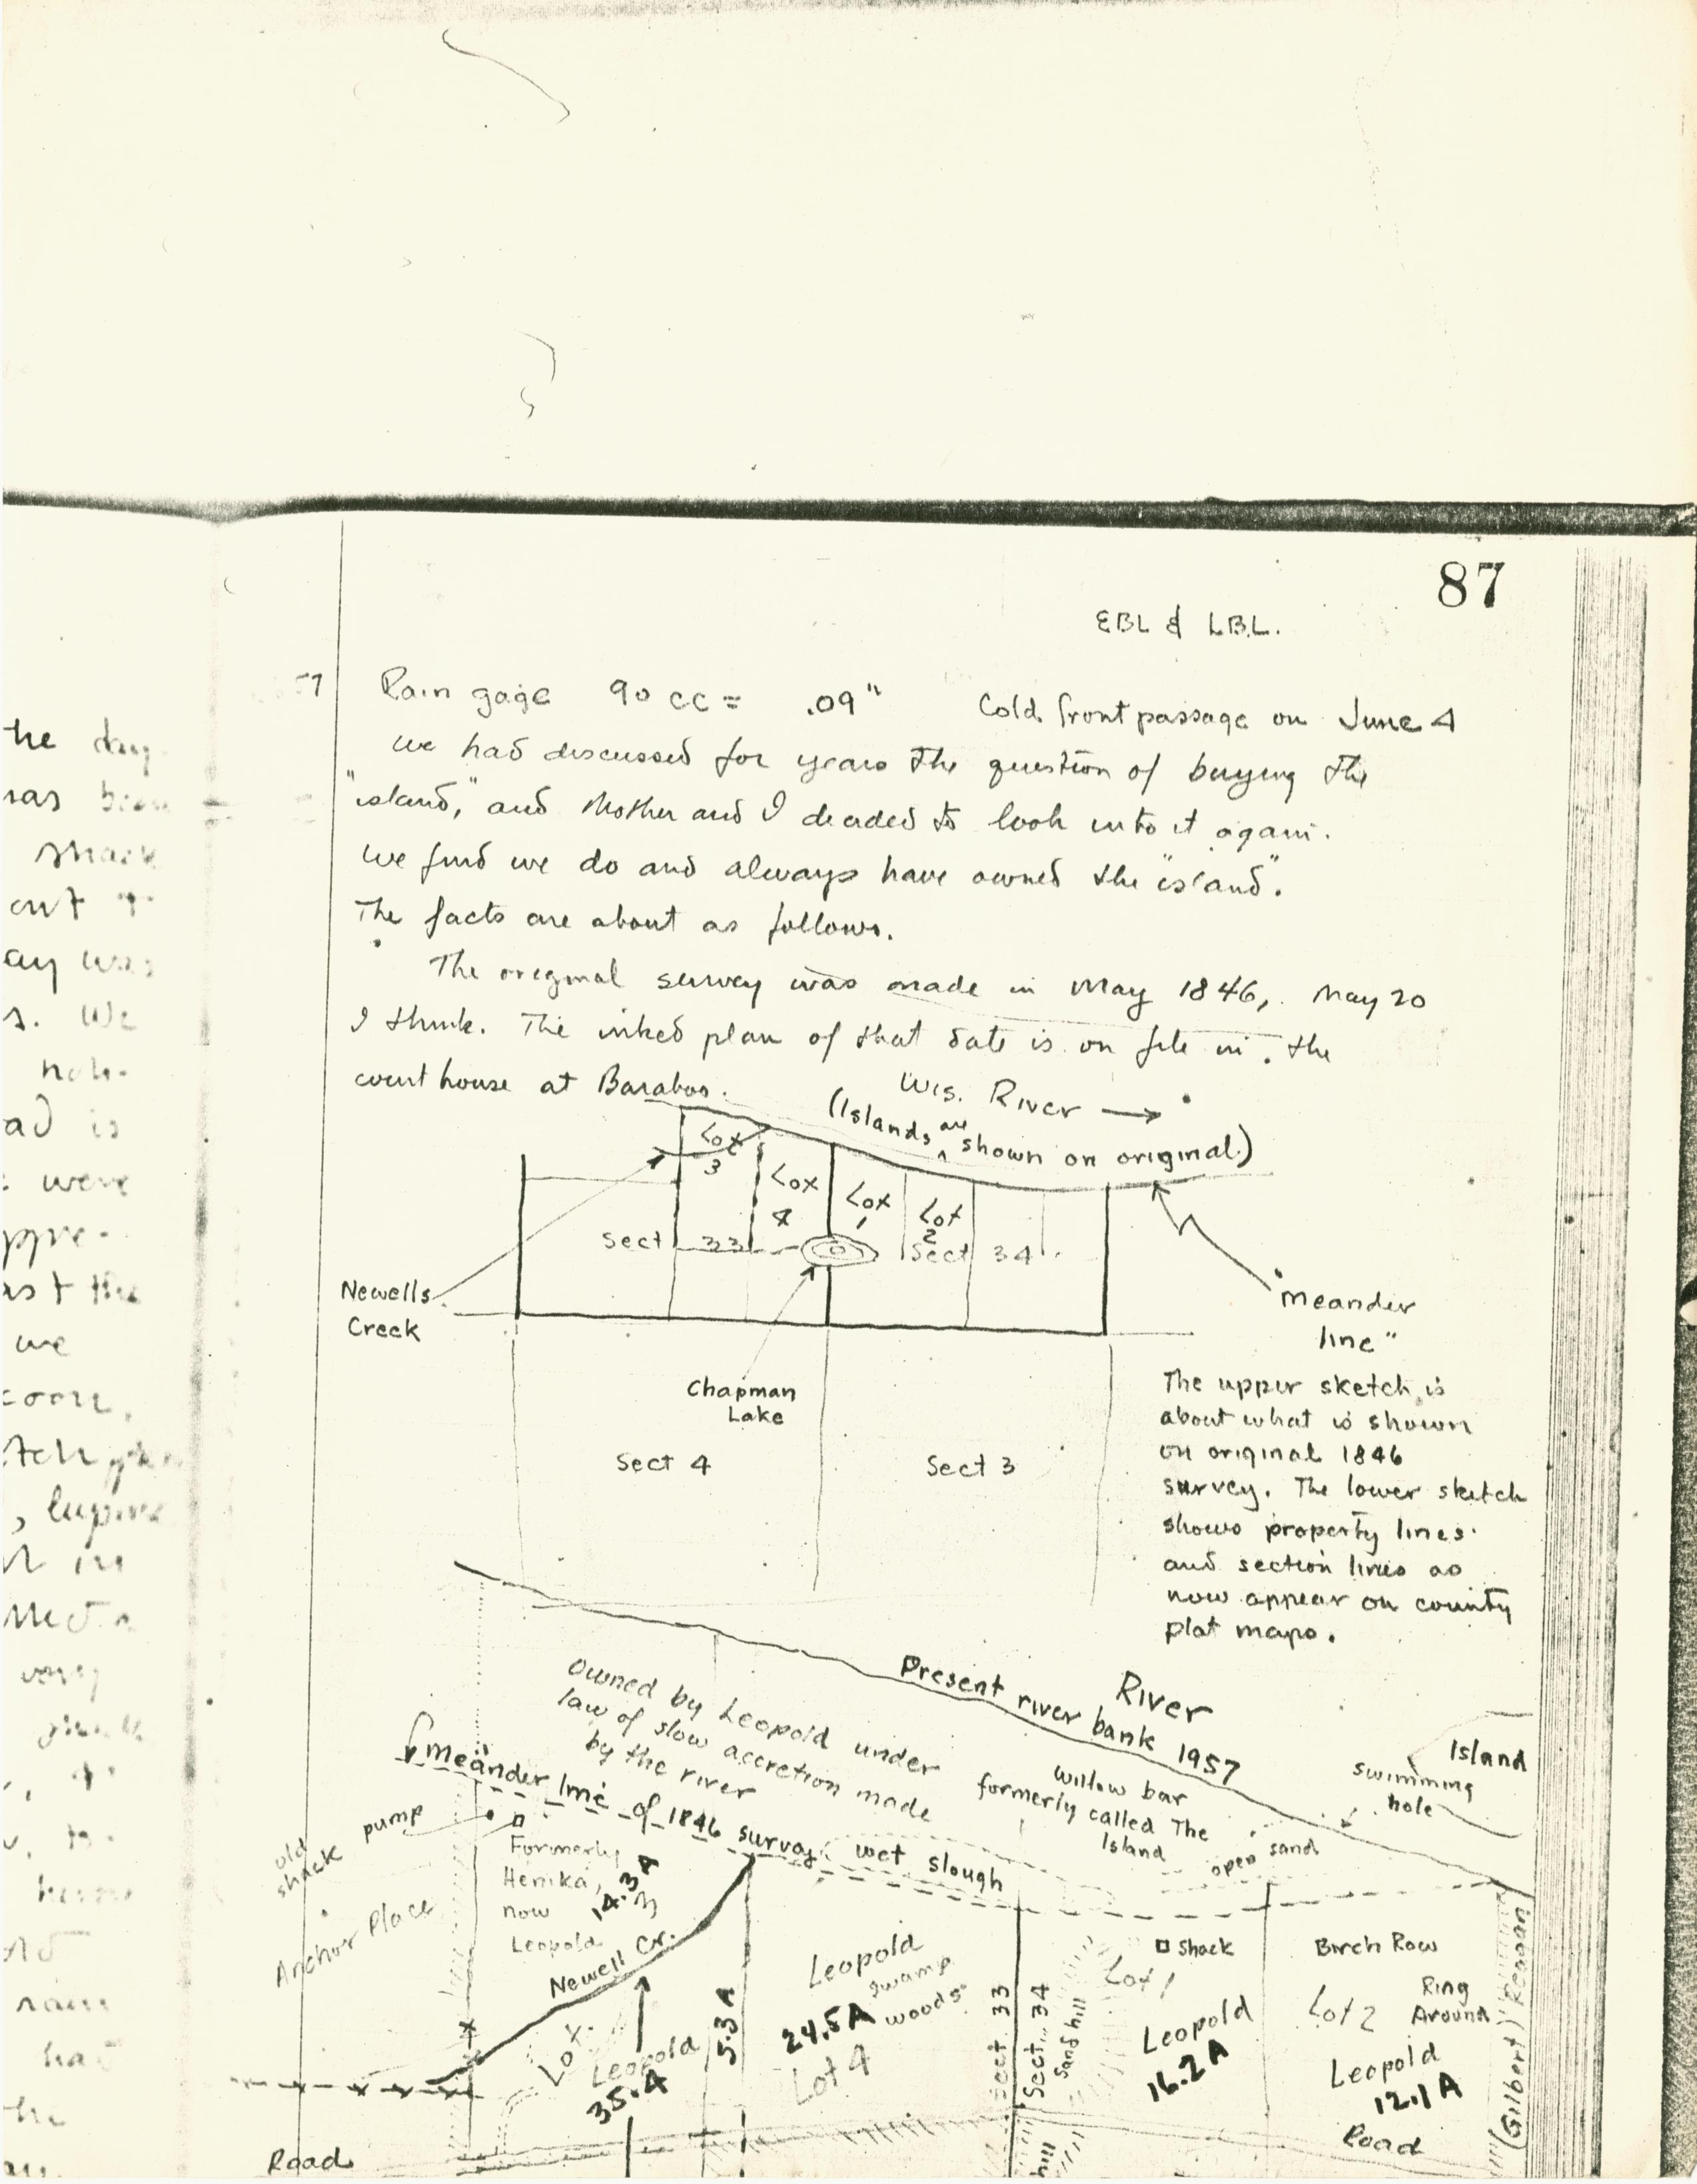 87
EBL & LBL.
57
Rain gage 90 cc = .09" Cold front passage on June 4
We had discussed for years the question of buying the
"island," and Mother and I decided to look into it again.
We find we do and always have owned the "island".
The facts are about as follows.
The original survey was made in May 1846, May 20
I think. The inked plan of that date is on file in the
court house at Baraboo.
Wis. River →
(Islands are shown on original.)
Lot 3
Lot 4
Lot 1
Lot 2
Sect 33
Sect 34
Newells
Creek
"meander
line"
Chapman
Lake
Sect 4
Sect 3
The upper sketch is
about what is shown
on original 1846
survey. The lower sketch
shows property lines
and section lines as
now appear on county
plat maps.
River
Present river bank 1957
Owned by Leopold under
law of slow accretion made
by the river
Island
swimming
hole
willow bar
formerly called The
Island
open sand
meander line of 1846 survey
wet slough
pump
old
shack
Formerly
Henika,
now
Leopold
14.3 A
Anchor Place
Newell Cr.
Lot
Leopold
35.4
5.3 A
Leopold
swamp
woods
24.5 A
Lot 4
Sect 33
Sect. 34
Sand hill
hill
Shack
Lot 1
Leopold
16.2 A
Birch Row
Ring
Around
Lot 2
Leopold
12.1 A
(Gilbert) Reagan
Road
Road
the day
has been
shack
out
ay was
s. We
ad is
were
appre-
we
coon,
, lupine
in
had
the